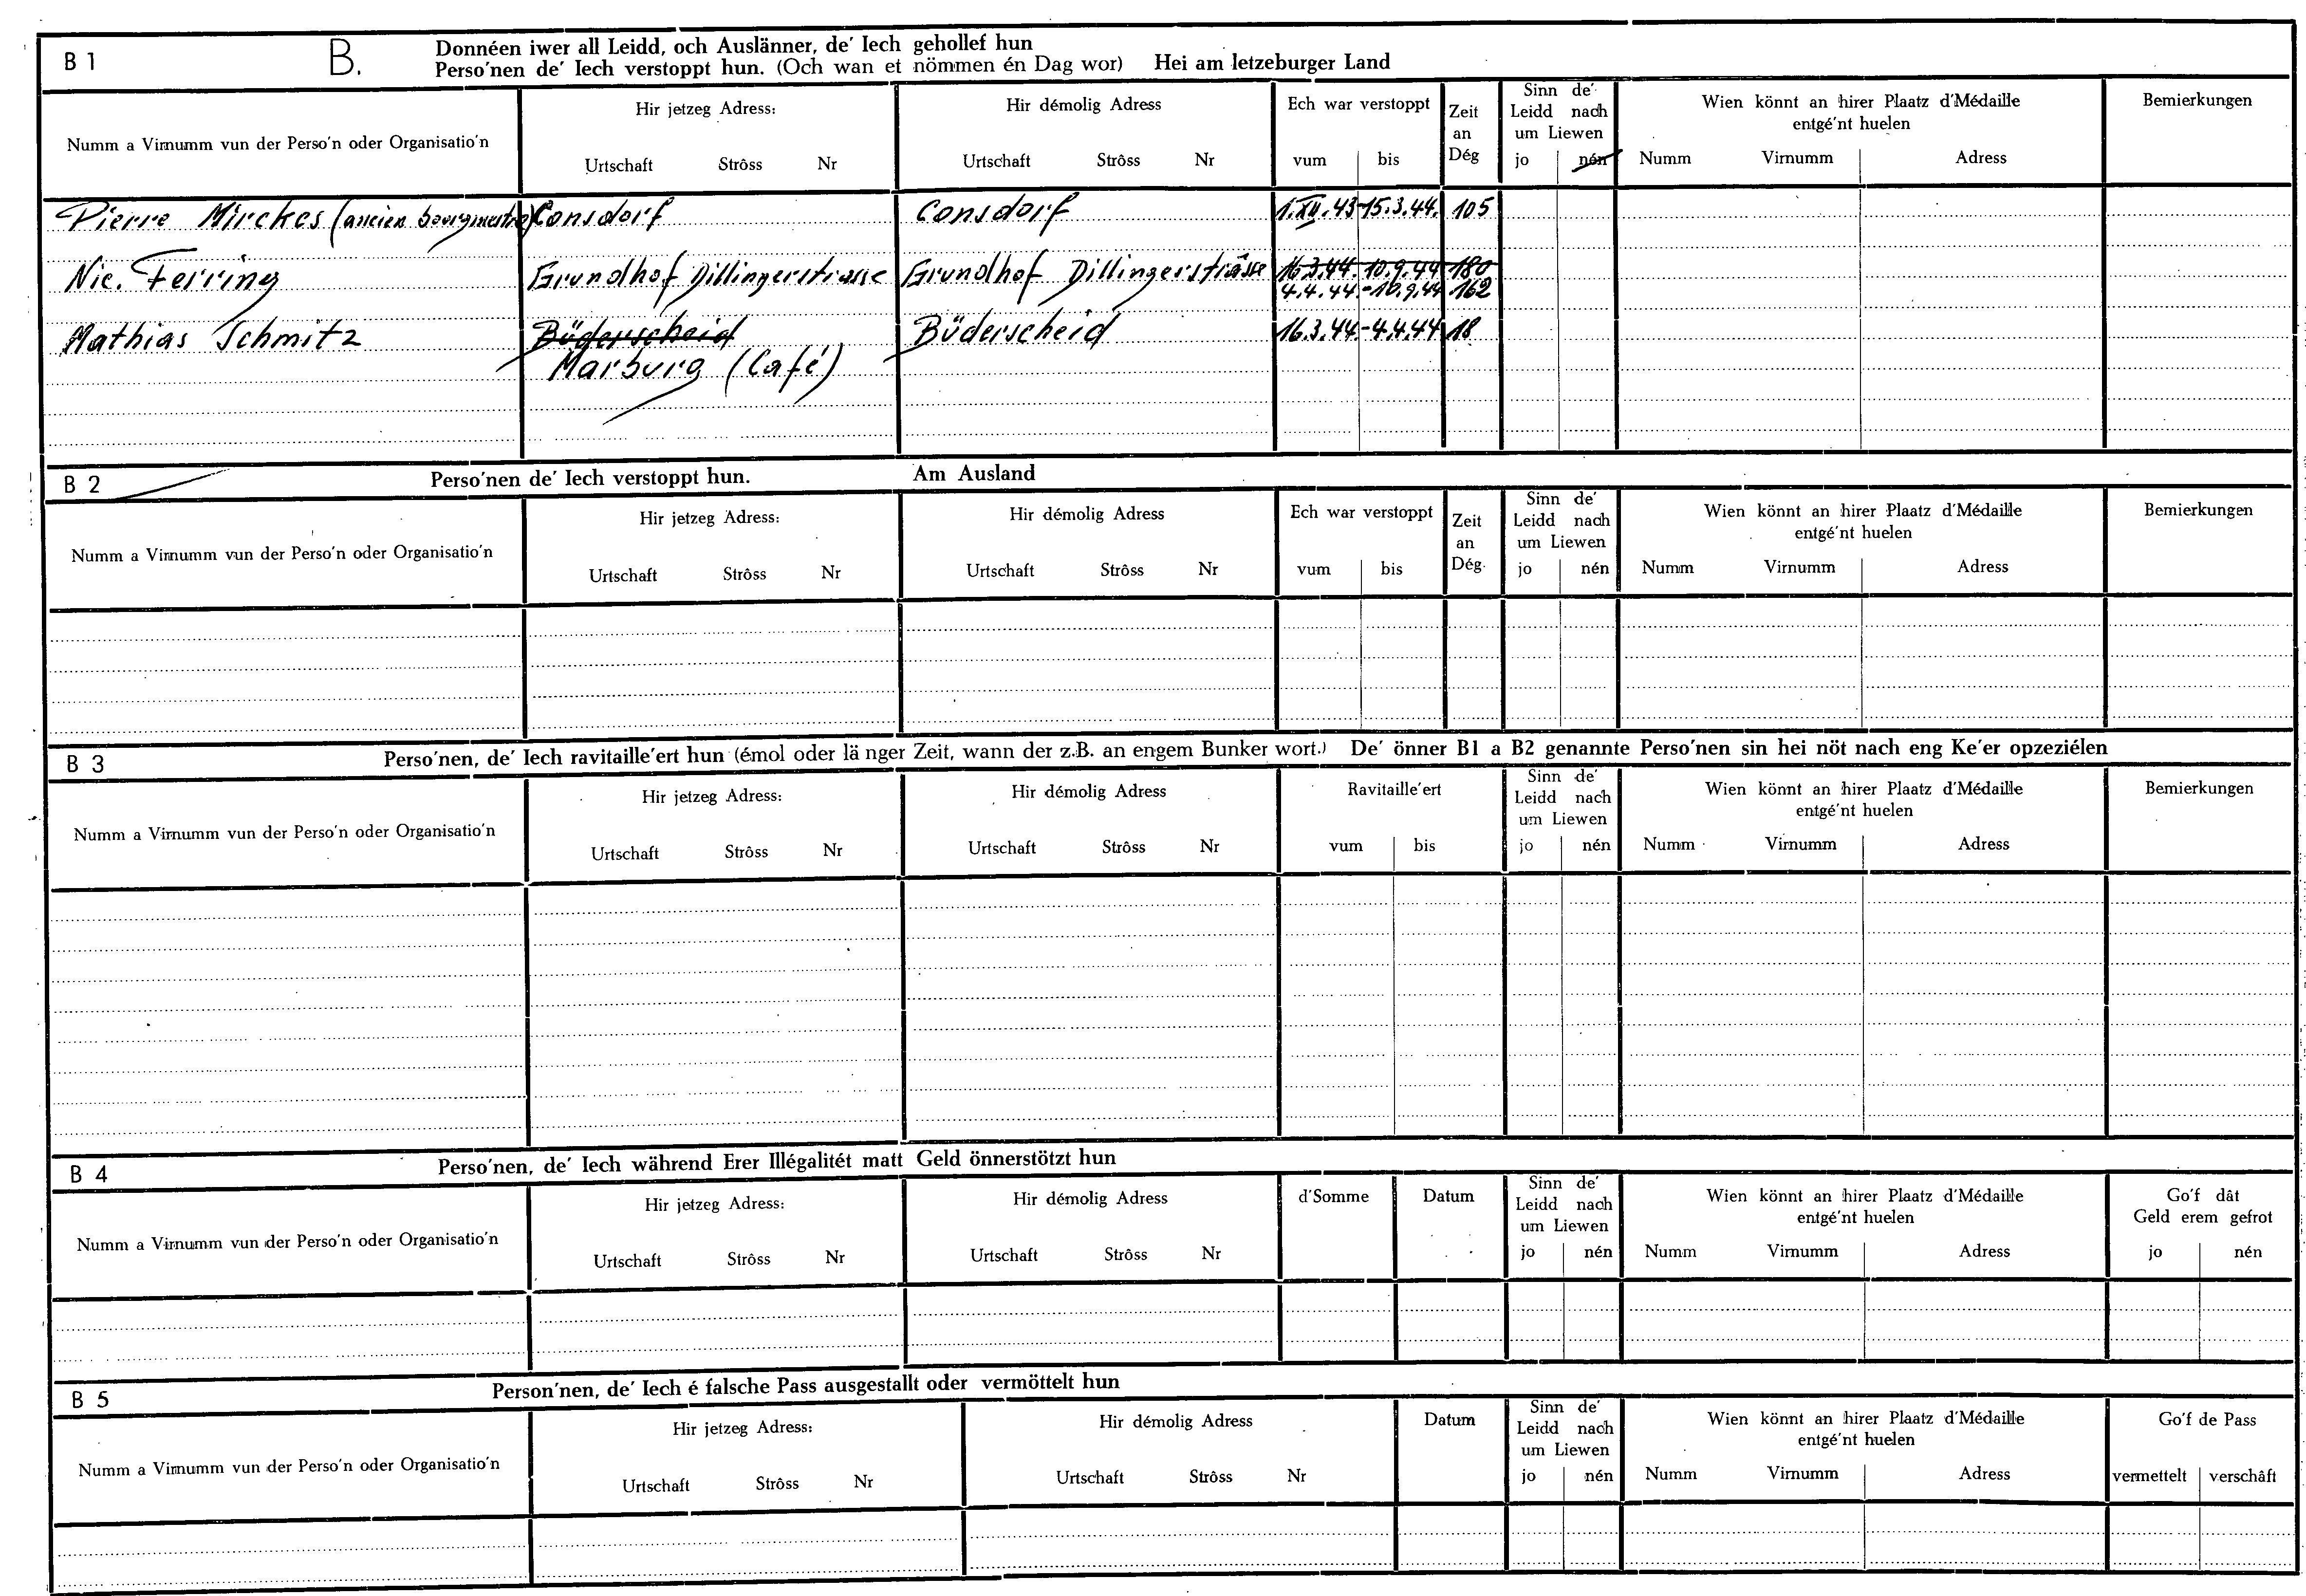 B 1
B.
Donnéen iwer all Leidd, och Auslänner, de' Iech gehollef hun
Perso'nen de' Iech verstoppt hun. (Och wan et nömmen én Dag wor) Hei am letzeburger Land
Numm a Virnumm vun der Perso'n oder Organisatio'n
Hir jetzeg Adress:
Urtschaft Strôss Nr
Hir démolig Adress
Urtschaft Strôss Nr
Ech war verstoppt
vum bis
Zeit
an
Dég
Sinn de'
Leidd nach
um Liewen
jo nén
Wien könnt an hirer Plaatz d'Médaille
entgé'nt huelen
Numm Virnumm Adress
Bemierkungen
Pierre Mirckes (ancien bourgmestre) Consdorf Consdorf 1.XII.43-15.3.44. 105
Nic. Ferring Grundhof Dillingerstrasse Grundhof Dillingerstrasse 16.3.44. 10.9.44 180
4.4.44.-10.9.44 162
Mathias Schmitz Büderscheid Büderscheid 16.3.44.-4.4.44 18
Marburg (Café)
B 2
Perso'nen de' Iech verstoppt hun. Am Ausland
Numm a Virnumm vun der Perso'n oder Organisatio'n
Hir jetzeg Adress:
Urtschaft Strôss Nr
Hir démolig Adress
Urtschaft Strôss Nr
Ech war verstoppt
vum bis
Zeit
an
Dég.
Sinn de'
Leidd nach
um Liewen
jo nén
Wien könnt an hirer Plaatz d'Médaille
entgé'nt huelen
Numm Virnumm Adress
Bemierkungen
B 3
Perso'nen, de' Iech ravitaille'ert hun (émol oder länger Zeit, wann der z.B. an engem Bunker wort.) De' önner B1 a B2 genannte Perso'nen sin hei nöt nach eng Ke'er opzeziélen
Numm a Virnumm vun der Perso'n oder Organisatio'n
Hir jetzeg Adress:
Urtschaft Strôss Nr
Hir démolig Adress
Urtschaft Strôss Nr
Ravitaille'ert
vum bis
Sinn de'
Leidd nach
um Liewen
jo nén
Wien könnt an hirer Plaatz d'Médaille
entgé'nt huelen
Numm Virnumm Adress
Bemierkungen
B 4
Perso'nen, de' Iech während Erer Illégalitét matt Geld önnerstötzt hun
Numm a Virnumm vun der Perso'n oder Organisatio'n
Hir jetzeg Adress:
Urtschaft Strôss Nr
Hir démolig Adress
Urtschaft Strôss Nr
d'Somme
Datum
Sinn de'
Leidd nach
um Liewen
jo nén
Wien könnt an hirer Plaatz d'Médaille
entgé'nt huelen
Numm Virnumm Adress
Go'f dât
Geld erem gefrot
jo nén
B 5
Person'nen, de' Iech é falsche Pass ausgestallt oder vermöttelt hun
Numm a Virnumm vun der Perso'n oder Organisatio'n
Hir jetzeg Adress:
Urtschaft Strôss Nr
Hir démolig Adress
Urtschaft Strôss Nr
Datum
Sinn de'
Leidd nach
um Liewen
jo nén
Wien könnt an hirer Plaatz d'Médaille
entgé'nt huelen
Numm Virnumm Adress
Go'f de Pass
vermettelt verschâft